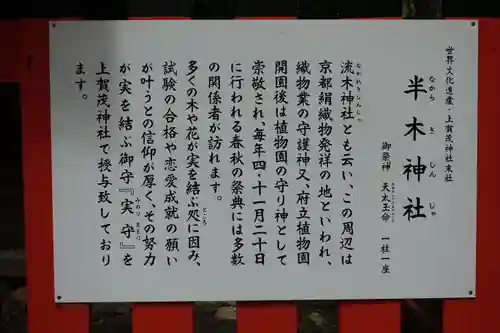 世界文化遺産・上賀茂神社末社
半木神社
なからぎじんじゃ
御祭神 天太玉命 一社一座
流木神社とも云い、この周辺は
ながれきじんじゃ
京都絹織物発祥の地といわれ、
織物業の守護神又、府立植物園
開園後は植物園の守り神として
崇敬され、毎年四・十一月二十日
に行われる春秋の祭典には多数
の関係者が訪れます。
多くの木や花が実を結ぶ処に因み、
ところ
試験の合格や恋愛成就の願い
が叶うとの信仰が厚く、その努力
が実を結ぶ御守『実守』を
みのりまもり
上賀茂神社で授与致しており
ます。